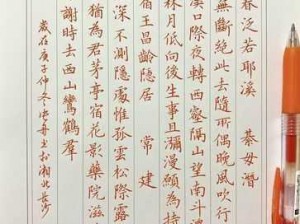 春泛若耶溪 綦毋潛
無斷絕此去隨所偶晚風吹行
溪口際夜轉西壑隔山望南斗潭
林月低向後生事且瀰漫願為持
宿王昌齡隱居 常建
深不測隱處惟孤雲松際露
猶為君茅亭宿花影藥院滋
謝時去西山鸞鶴群
歲在庚子仲冬